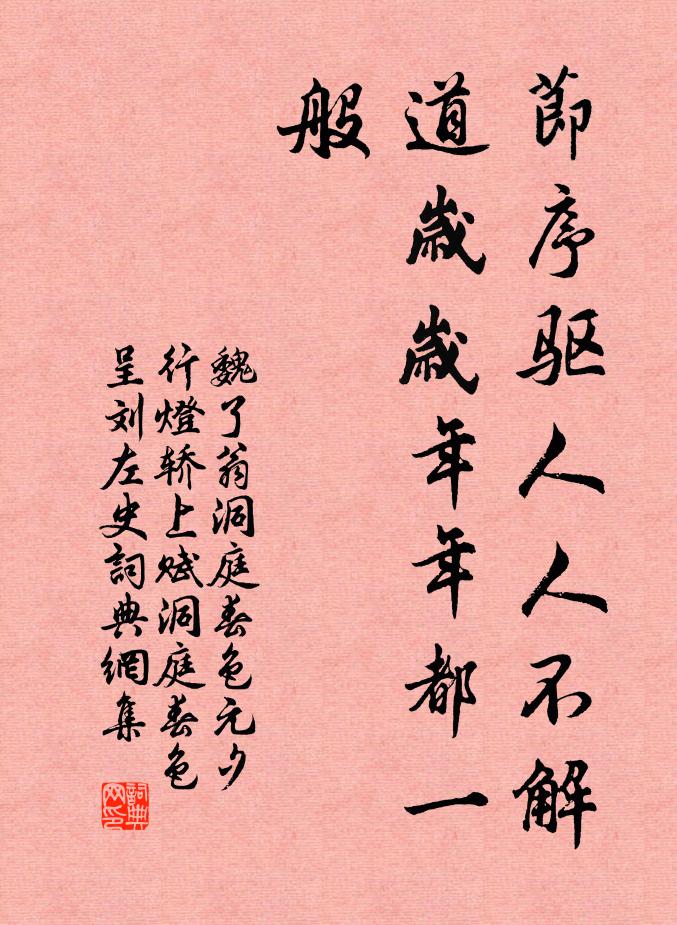 節序驱人人不解
道歲歲年年都一
般
魏了翁洞庭春色元夕
行燈轿上赋洞庭春色
呈刘左史詞典網集
詞典网印